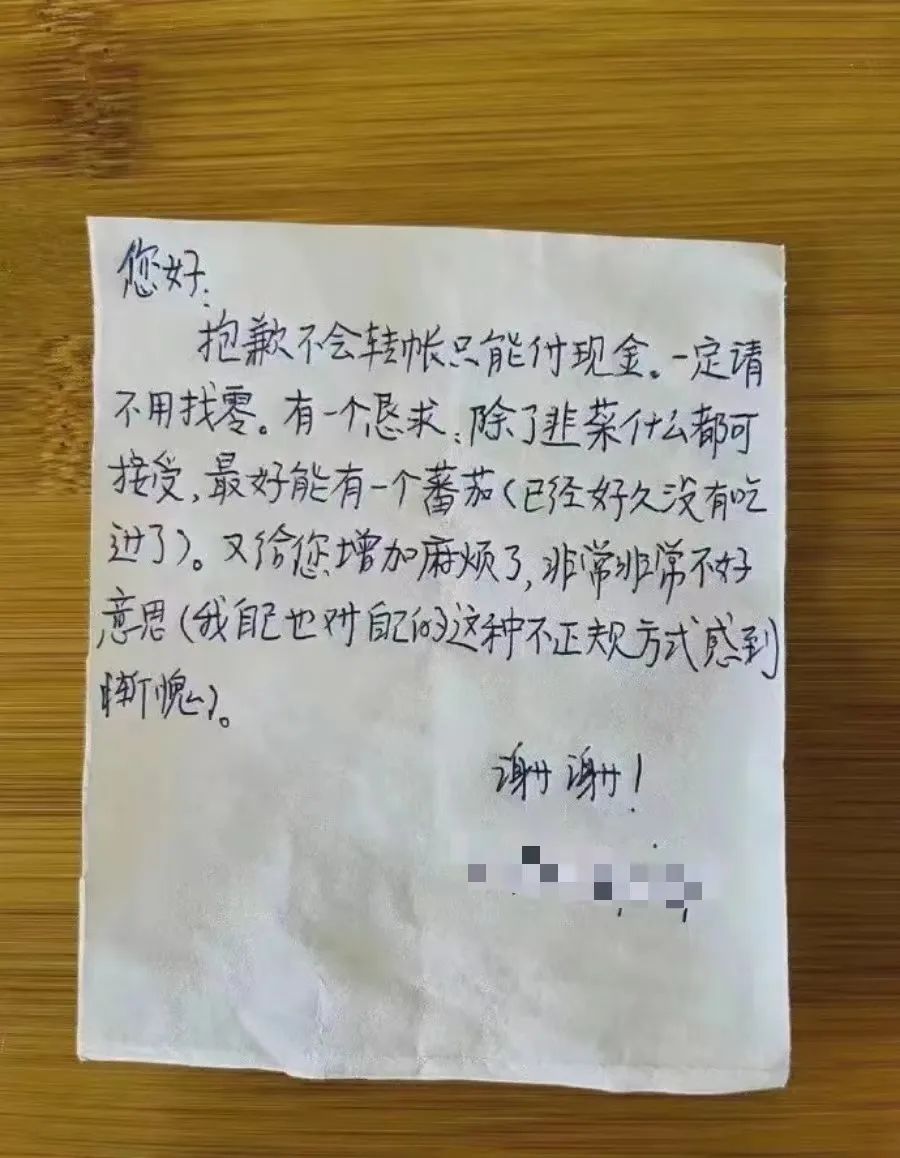 您好:
抱歉不会转帐只能付现金。一定请
不用找零。有一个恳求:除了韭菜什么都可
接受,最好能有一个蕃茄(已经好久没有吃
过了)。又给您增加麻烦了,非常非常不好
意思(我自己也对自己的这种不正规方式感到
惭愧)。
谢谢!